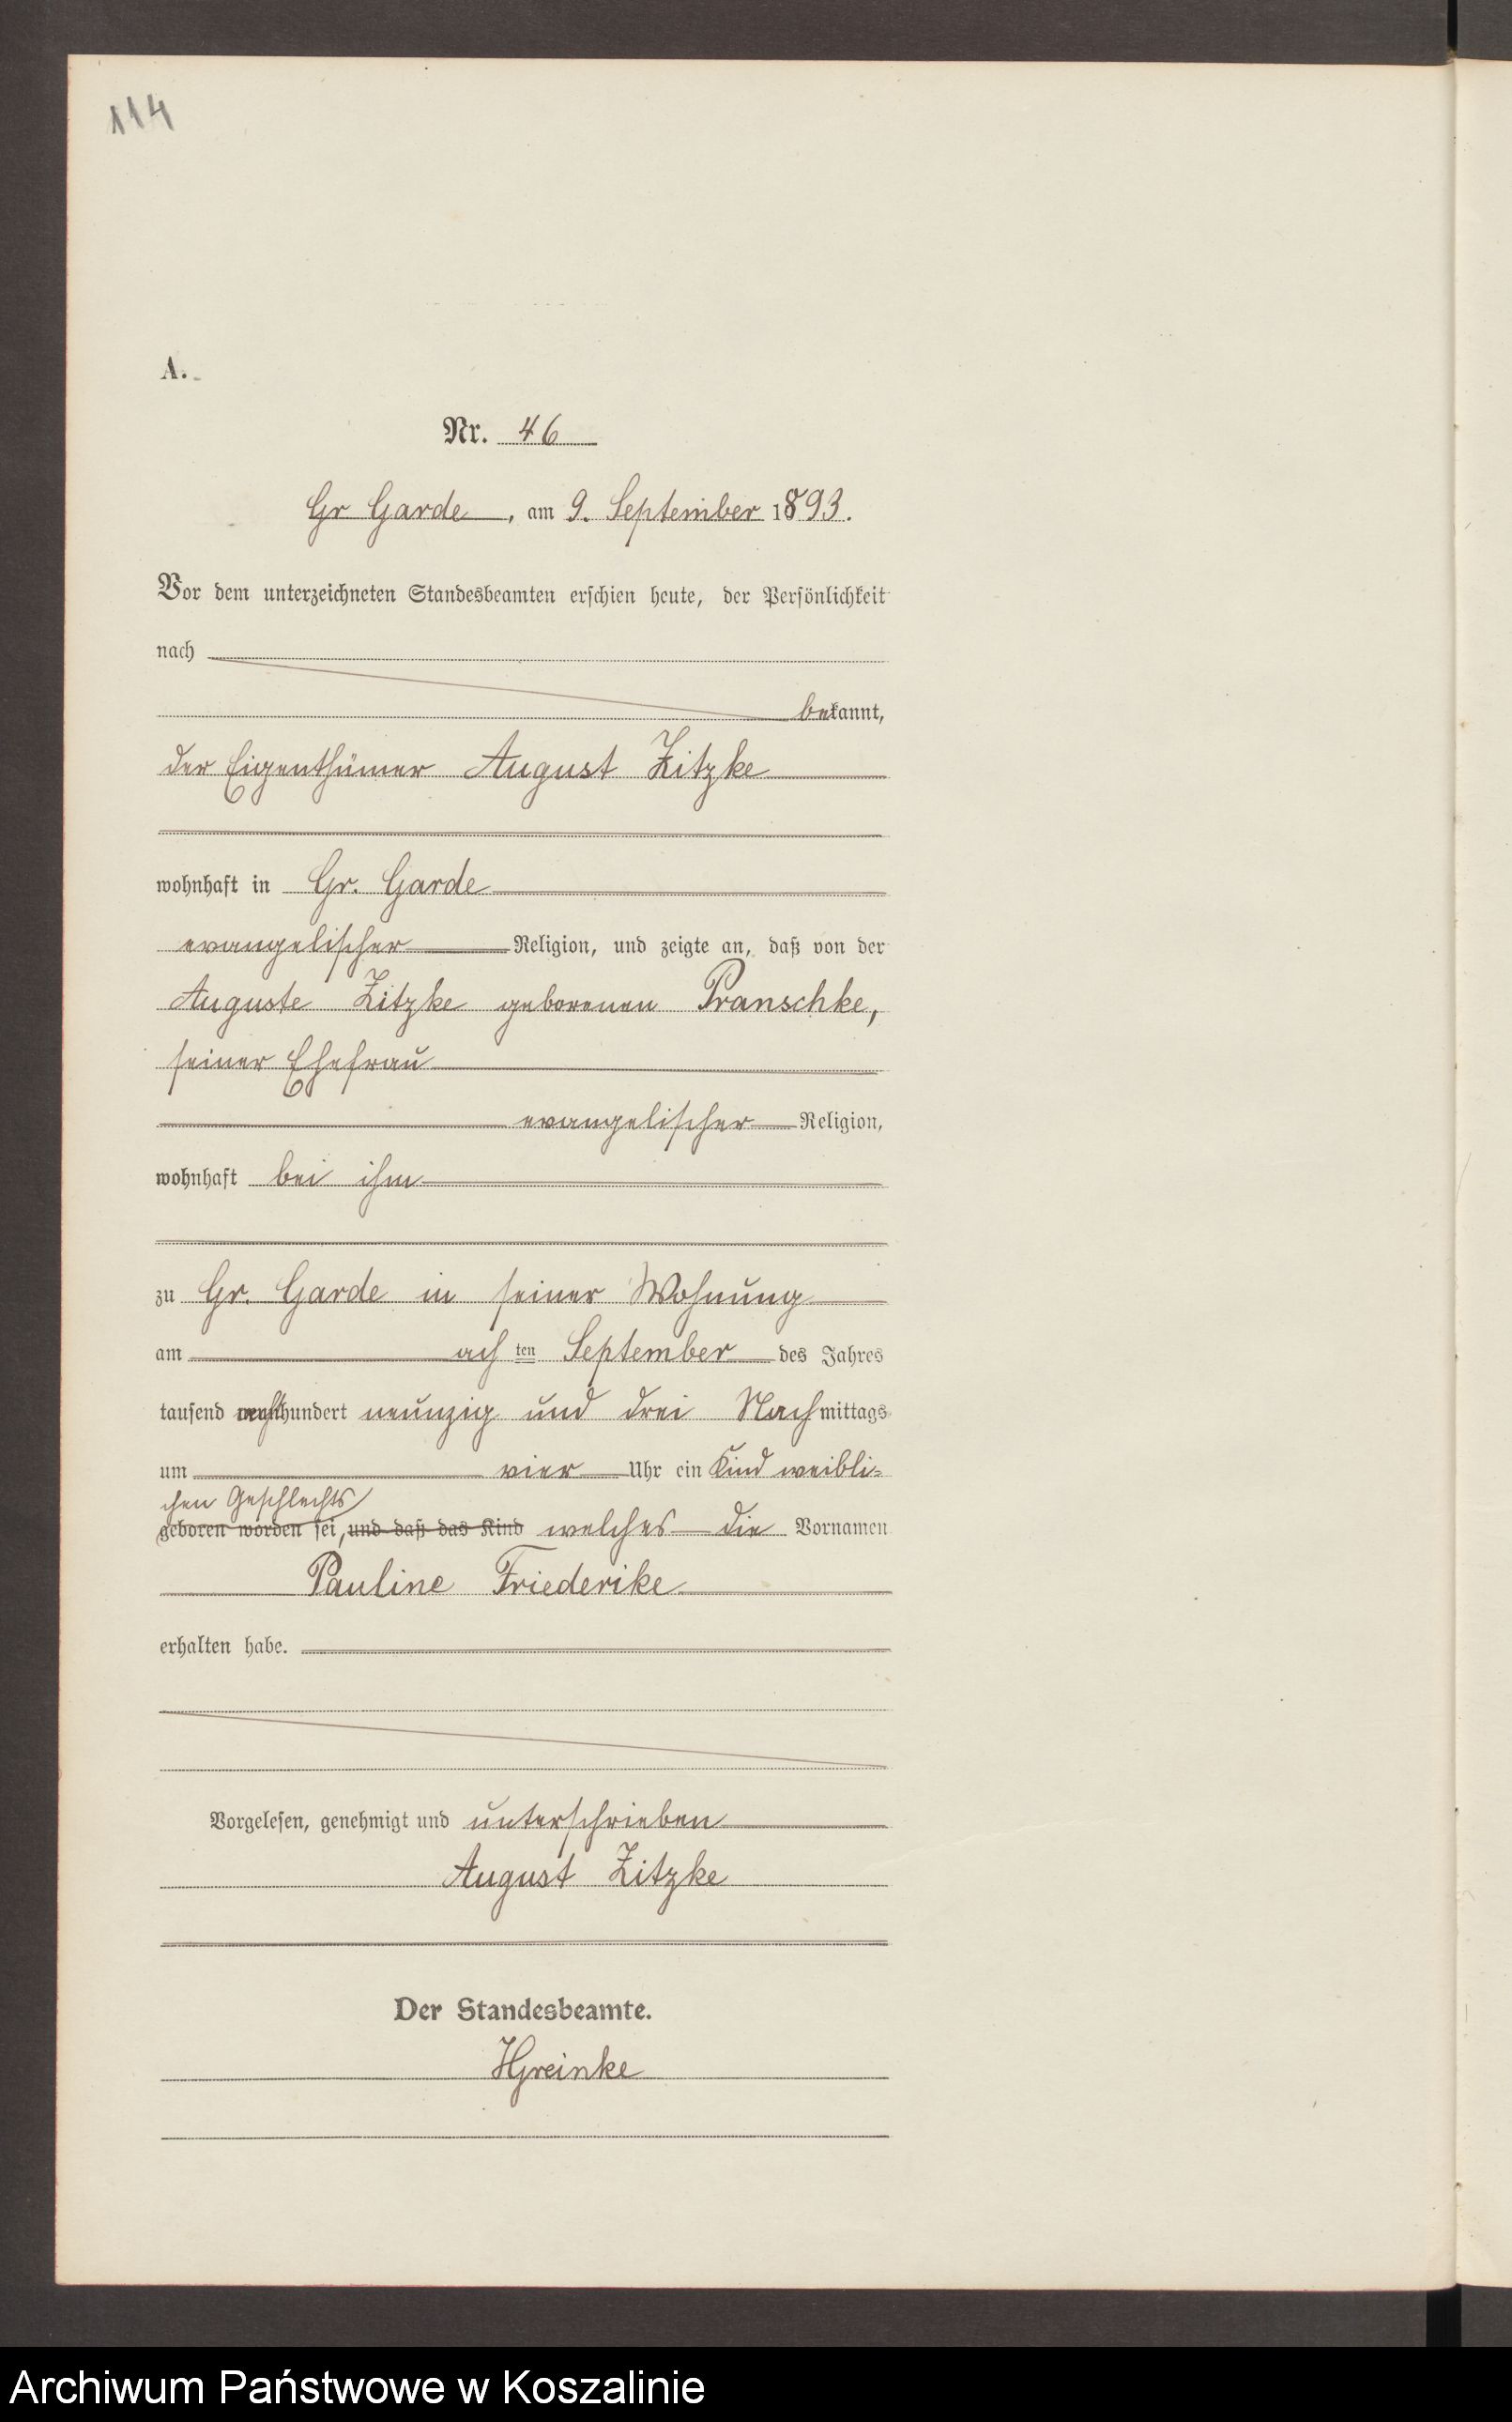 114
A.
Nr. 46
Gr Garde, am 9. September 1893.
Vor dem unterzeichneten Standesbeamten erschien heute, der Persönlichkeit
nach
bekannt,
der Eigenthümer August Zitzke
wohnhaft in Gr. Garde
evangelischer Religion, und zeigte an, daß von der
Auguste Zitzke geborenen Pranschke,
seiner Ehefrau
evangelischer Religion,
wohnhaft bei ihm
zu Gr. Garde in seiner Wohnung
am ach ten September des Jahres
tausend acht hundert neunzig und drei Nachmittags
um vier Uhr ein Kind weibli-
chen Geschlechts
geboren worden sei, und daß das Kind welches die Vornamen
Pauline Friederike
erhalten habe.
Vorgelesen, genehmigt und unterschrieben
August Zitzke
Der Standesbeamte.
HGreinke
Archiwum Państwowe w Koszalinie